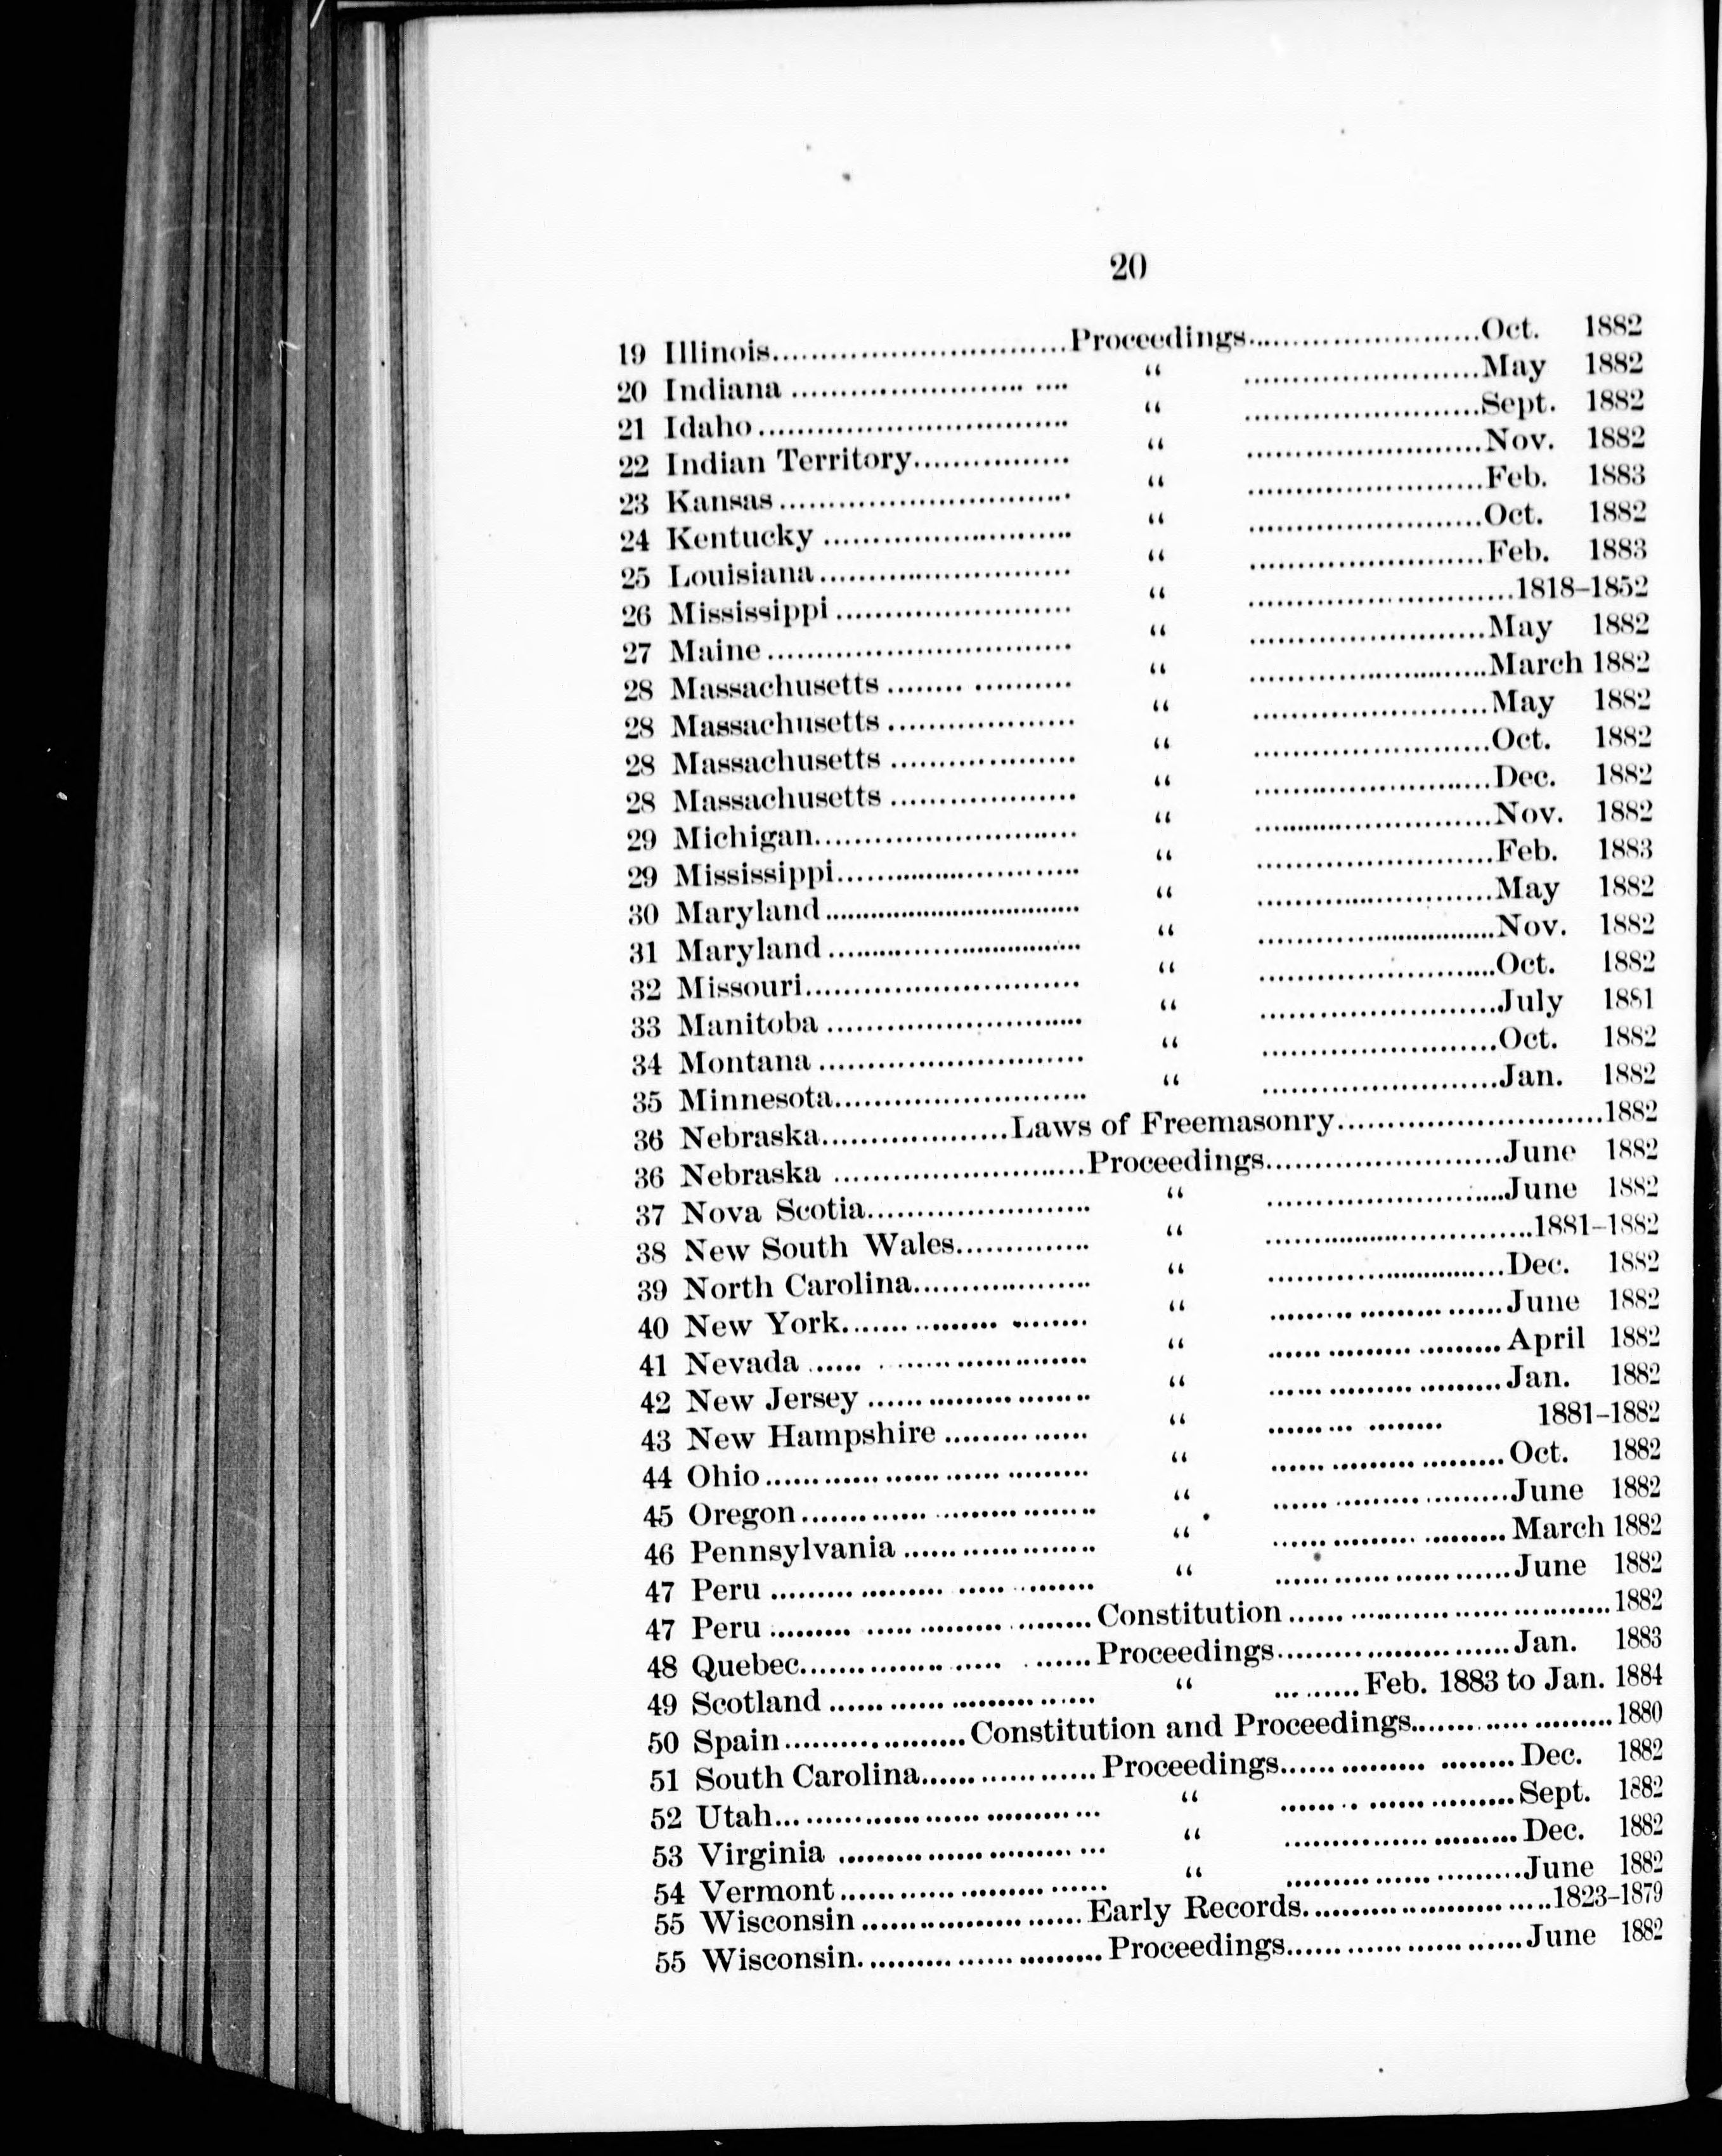 20
19 Illinois..............................Proceedings........................Oct. 1882
20 Indiana ........................ .... “ ........................May 1882
21 Idaho................................ “ ........................Sept. 1882
22 Indian Territory................ “ ........................Nov. 1882
23 Kansas.............................. “ ........................Feb. 1883
24 Kentucky .......................... “ ........................Oct. 1882
25 Louisiana.......................... “ ........................Feb. 1883
26 Mississippi........................ “ ...........................1818–1852
27 Maine............................... “ ........................May 1882
28 Massachusetts........ .......... “ ........................March 1882
28 Massachusetts................... “ ........................May 1882
28 Massachusetts................... “ ........................Oct. 1882
28 Massachusetts................... “ ........................Dec. 1882
29 Michigan........................... “ ........................Nov. 1882
29 Mississippi......................... “ ........................Feb. 1883
30 Maryland.......................... “ ........................May 1882
31 Maryland.......................... “ ........................Nov. 1882
32 Missouri............................ “ ........................Oct. 1882
33 Manitoba.......................... “ ........................July 1881
34 Montana........................... “ ........................Oct. 1882
35 Minnesota.......................... “ ........................Jan. 1882
36 Nebraska...................Laws of Freemasonry...........................1882
36 Nebraska ..........................Proceedings........................June 1882
37 Nova Scotia....................... “ ........................June 1882
38 New South Wales.............. “ ...........................1881–1882
39 North Carolina.................. “ ........................Dec. 1882
40 New York....... ......... ........ “ ........ ......... ......June 1882
41 Nevada ...... ....... ............. “ ...... ......... .........April 1882
42 New Jersey ...... ......... ........ “ ...... ......... .........Jan. 1882
43 New Hampshire ......... ...... “ ......... ......... 1881–1882
44 Ohio...... ...... ...... ...... ......... “ ...... ......... .........Oct. 1882
45 Oregon....... ...... ......... ........ “ ...... ......... .........June 1882
46 Pennsylvania ...... ...... ........ “ ...... ......... .........March 1882
47 Peru ......... ......... ..... ........ “ ...... ...... ...... ......June 1882
47 Peru ......... ..... ......... .........Constitution...... ...... ...... ...... .........1882
48 Quebec....... ........ ..... .......Proceedings......... ......... ......Jan. 1883
49 Scotland ...... ...... ......... ...... “ ... ......Feb. 1883 to Jan. 1884
50 Spain......... .........Constitution and Proceedings....... ..... .........1880
51 South Carolina...... ...... ......Proceedings...... ......... .........Dec. 1882
52 Utah... ...... ...... ...... ......... ... “ ...... .. ...... .........Sept. 1882
53 Virginia ......... ...... ......... ... “ ......... ...... .........Dec. 1882
54 Vermont...... ...... ......... ...... “ ......... ...... .........June 1882
55 Wisconsin...... ...... ...... ......Early Records...... ...... ......... .....1823–1879
55 Wisconsin. ......... ...... .........Proceedings...... ...... ...... ......June 1882